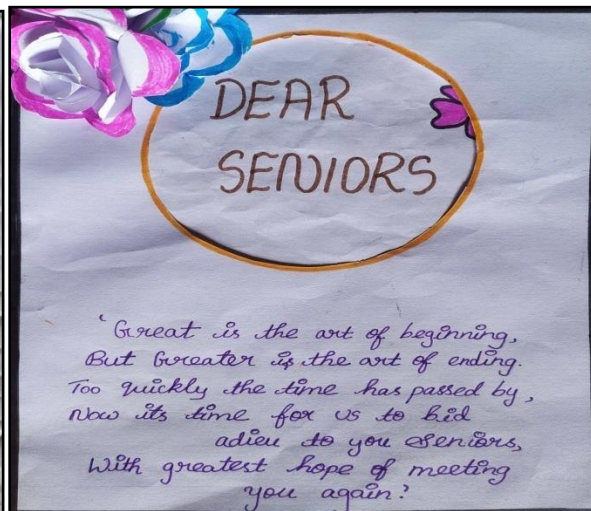 DEAR
SENIORS
'Great is the art of beginning,
But Greater is the art of ending.
Too quickly the time has passed by,
Now its time for us to bid
adieu to you Seniors,
With greatest hope of meeting
you again?